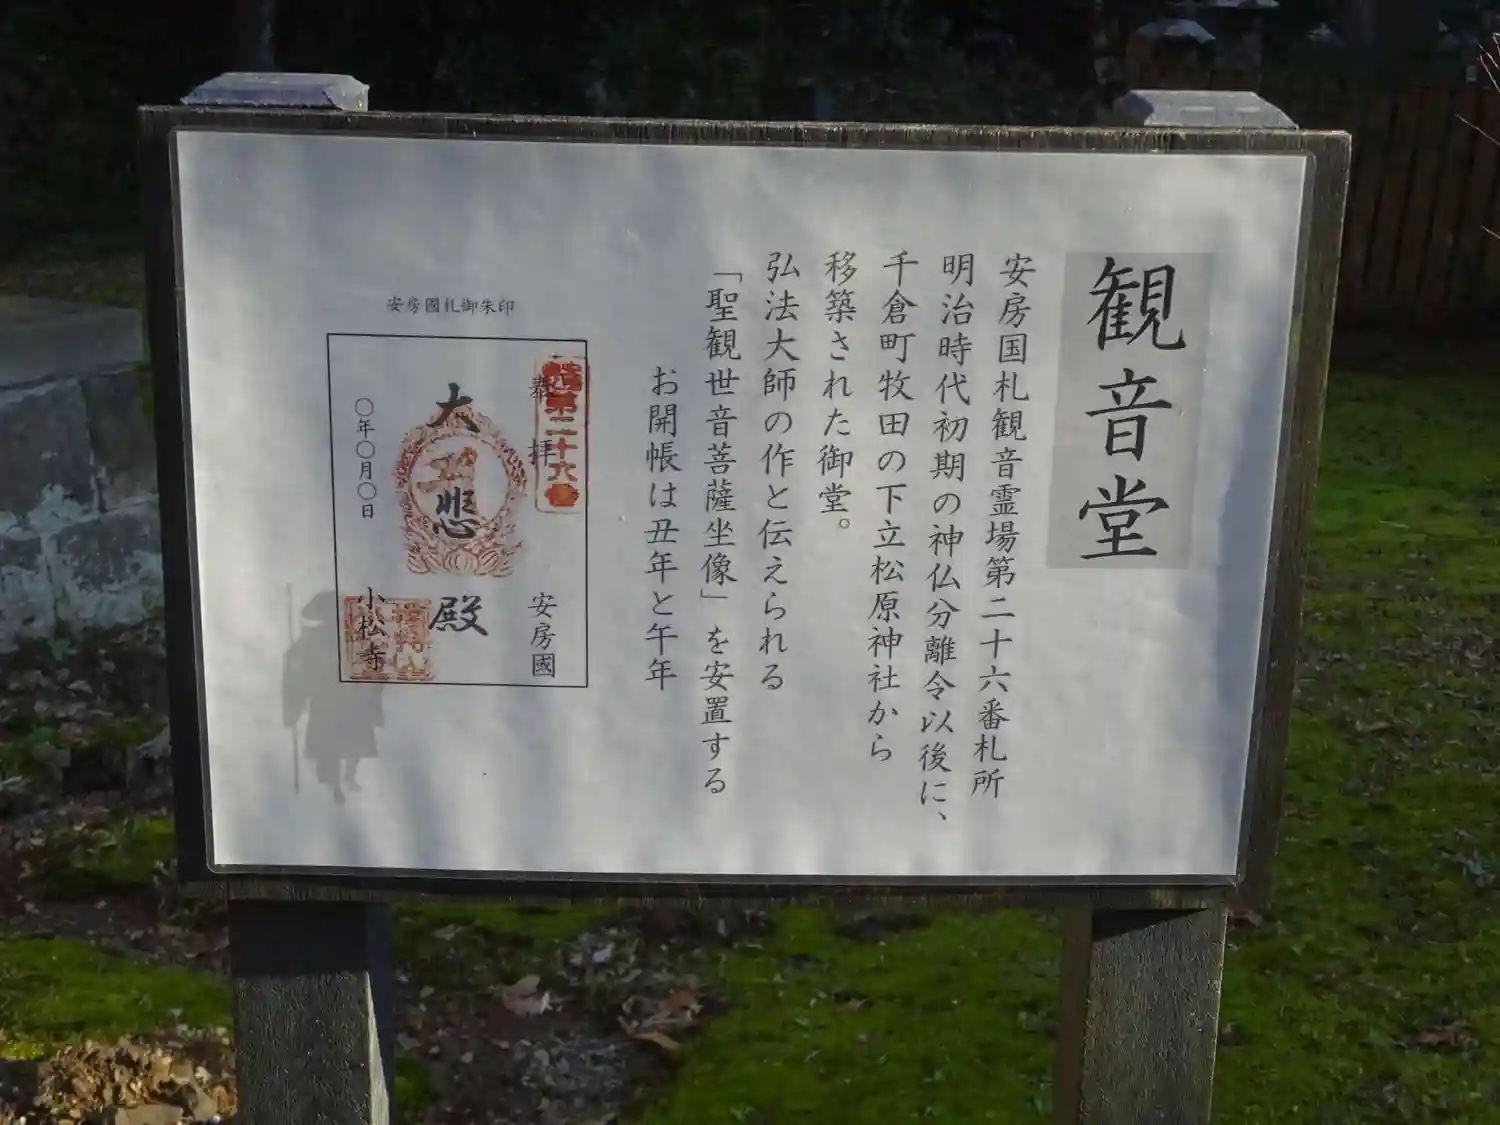 観音堂
安房国札観音霊場第二十六番札所
明治時代初期の神仏分離令以後に、
千倉町牧田の下立松原神社から
移築された御堂。
弘法大師の作と伝えられる
「聖観世音菩薩坐像」を安置する
お開帳は丑年と午年
安房國札御朱印
第二十六番
奉拝
安房國
大悲殿
〇年〇月〇日
小松寺